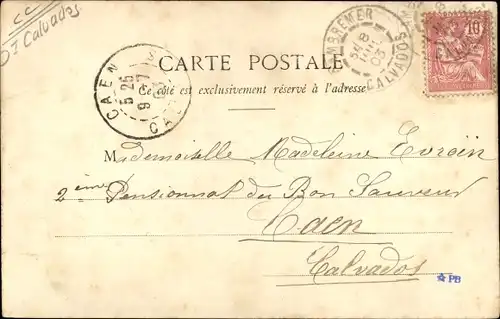 CC
D7 Calvados
CARTE POSTALE
Ce côté est exclusivement réservé à l'adresse
CAMBREMER
8
03
CALVADOS
10
CAEN
5 25
9
Mademoiselle Madeleine Evrain
2ème Pensionnat du Bon Sauveur
Caen
Calvados
PB